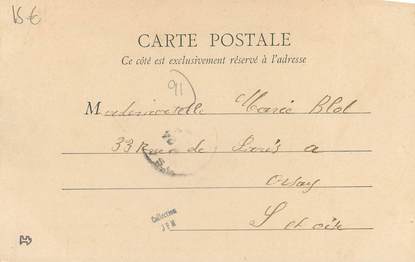 15 €
CARTE POSTALE
Ce côté est exclusivement réservé à l'adresse
91
Mademoiselle Marie Blot
33 Rue de Paris a
Orsay
S et oise
Collection
JFM